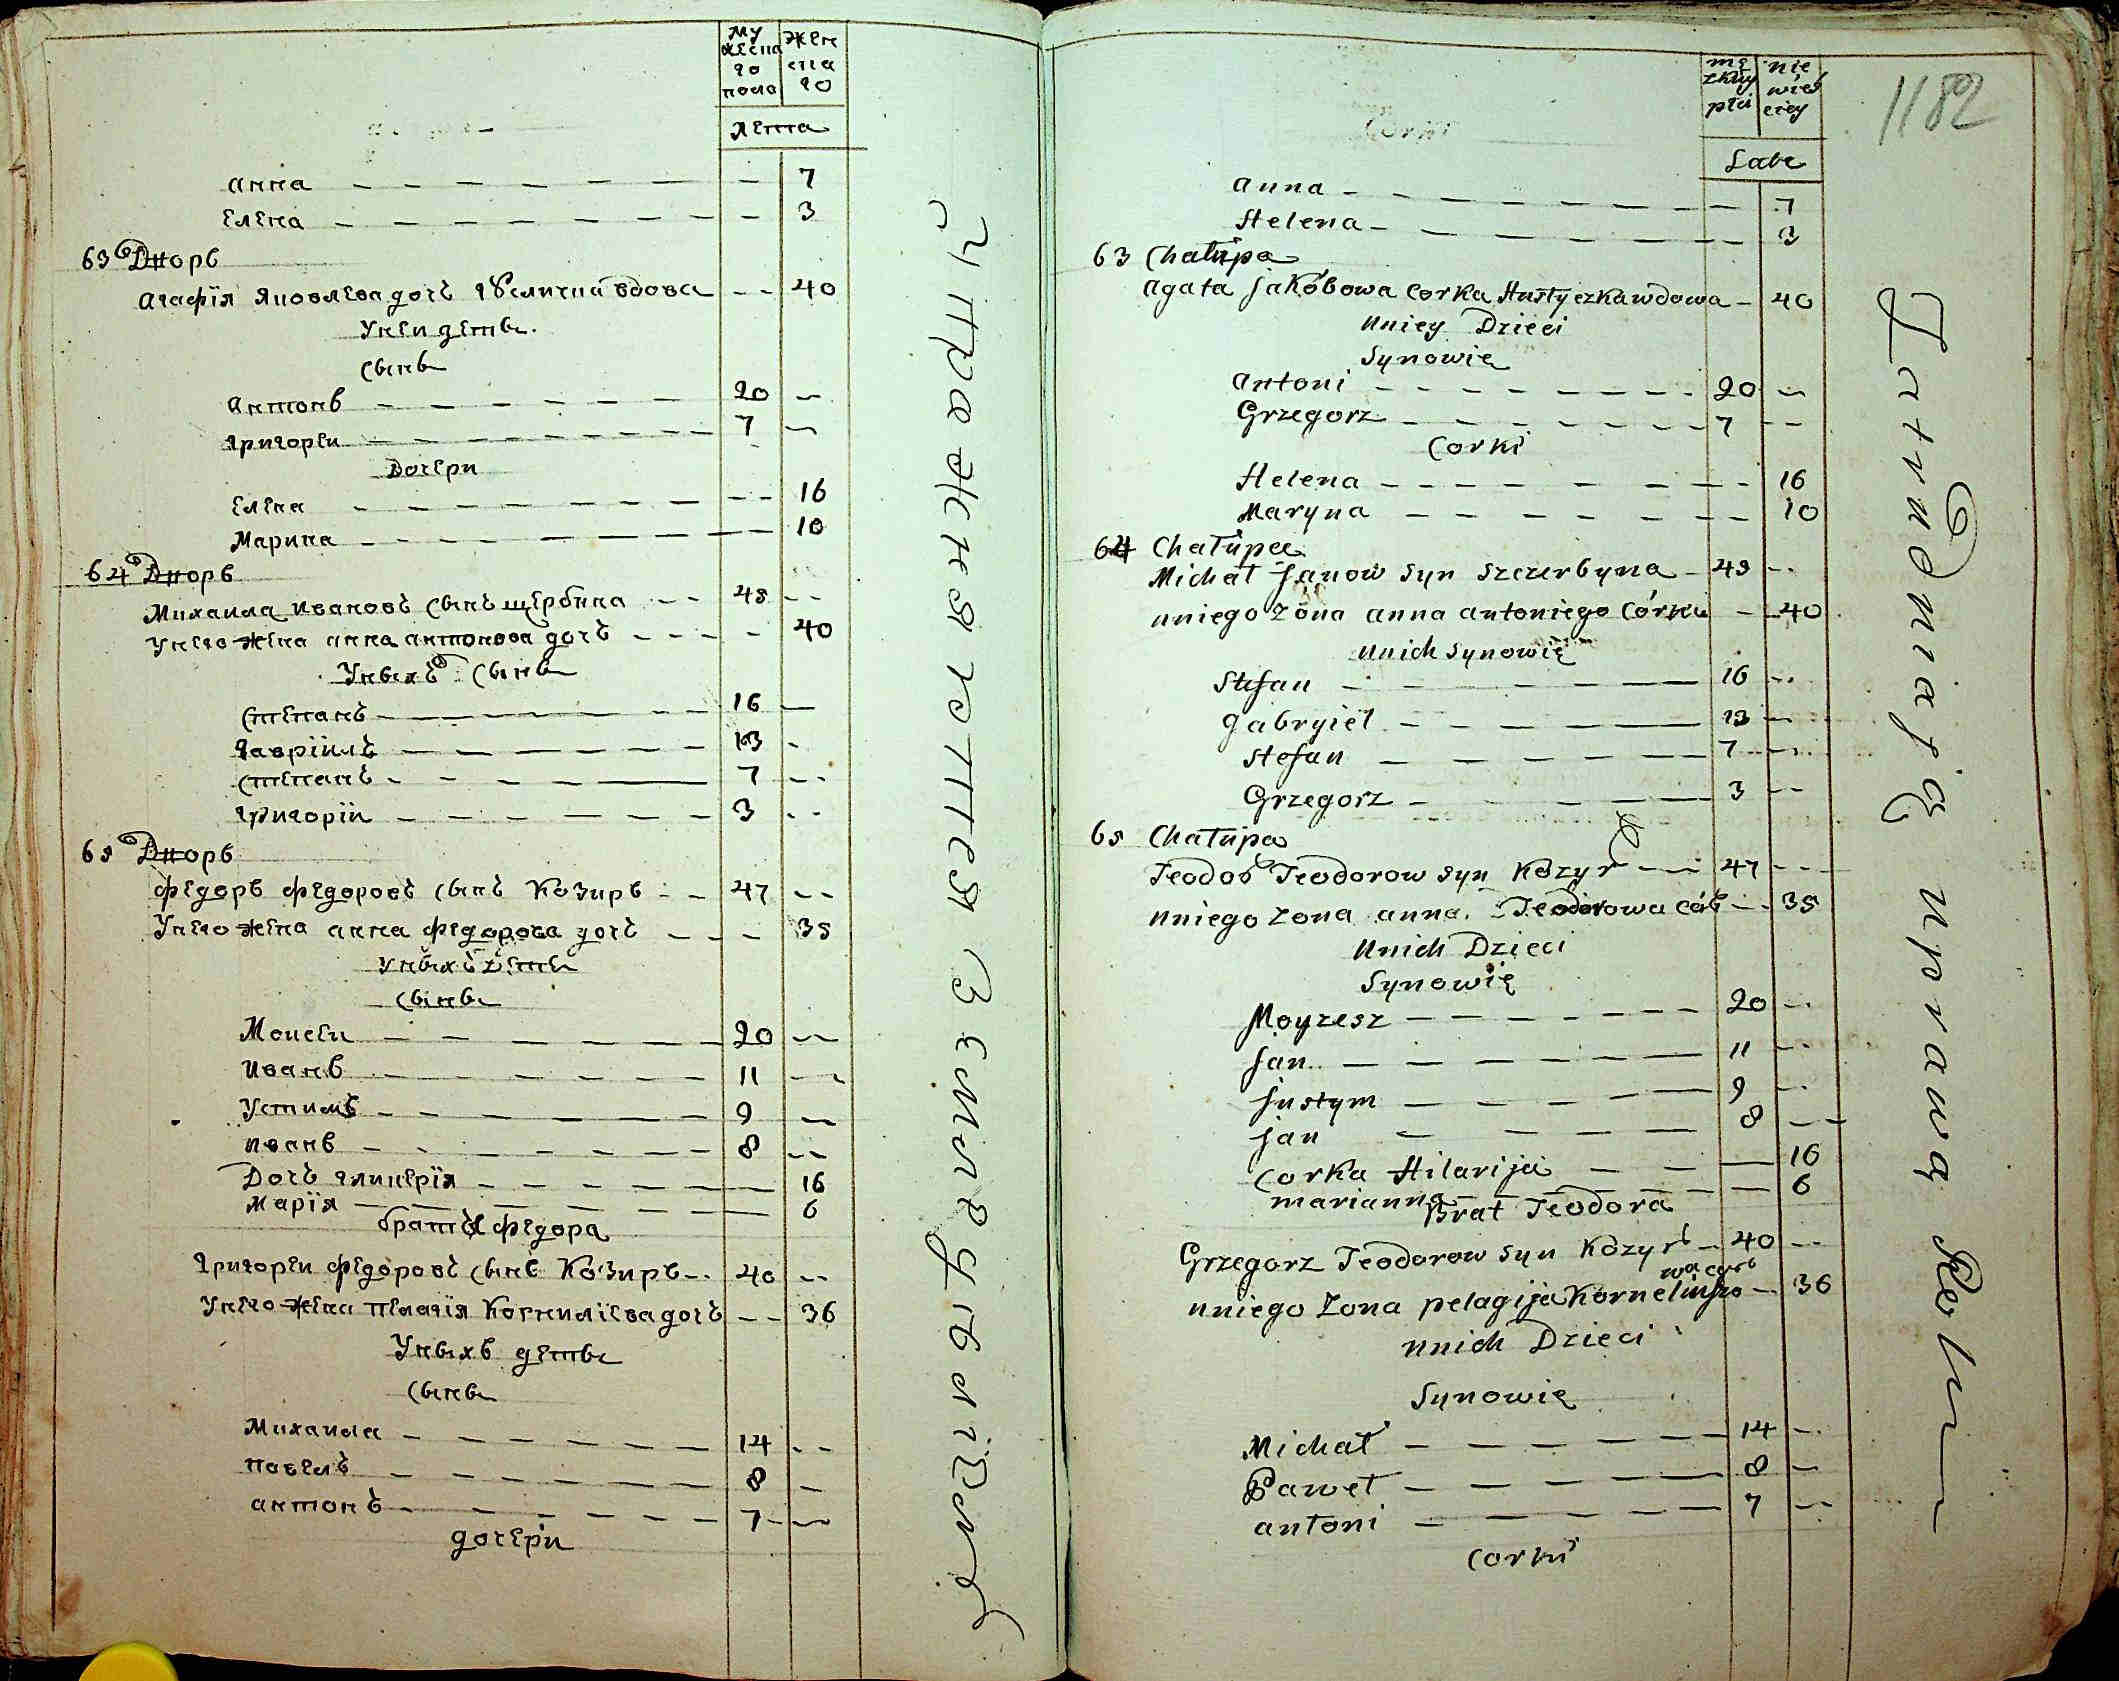 мужеска го пола
женска го
лета
анна — — — — — — — 7
елена — — — — — — — 3
63 Дворъ
агафія яковлева дочь вдова — — 40
У неи дети
сыны
антонъ — — — — — — 20 —
григореи — — — — — — — 7 —
дочери
елена — — — — — — — — 16
марина — — — — — — — — 10
64 Дворъ
михаила ивановъ сынъ щербина — — 48 — —
У него жена анна антонова дочь — — — — 40
У ныхъ сыны
степанъ — — — — — 16 —
гавріилъ — — — — — 13 -
степанъ — — — — 7 — -
григоріи — — — — — — 3 - -
65 Дворъ
федоръ федоровъ сынъ козиръ — — 47 — —
У него жена анна федорова дочь — — — 35
У ныхъ дети
сыны
моисеи — — — — — — 20 —
иванъ — — — — — — 11 —
Устимъ — — — — — — 9 —
иванъ — — — — — — 8 — -
дочь гликерія — — — — — — 16
марія — — — — — — 6
братъ федора
григореи федоровъ сынъ козиръ — . 40 —
У него жена пелагія корниліева дочь — — 36
У ныхъ дети
сыны
михаила — — — — — — 14 — -
павелъ — — — — — — 8 —
антонъ — — — — — — 7 — —
дочери
Упражняются в земле дѣланіемъ
1182
Corki
mę zkiey płci
nie wieś ciey
Late
anna — — — — — — — 7
Helena — — — — — — — 3
63 Chałupa
agata Jakóbowa corka wdowa — 40
u niey Dzieci
Synowie
antoni — — — — — — 20 —
Grzegorz — — — — — — 7 - -
Corki
Helena — — — — — — — 16
Maryna — — — — — — — 10
64 Chałupa
Michał Janow syn Szczerbyna — 48 - -
u niego żona anna antoniego córka — 40
u nich Synowie
Stefan — — — — — 16 - -
Gabryiel — — — — — 13 —
Stefan — — — — — 7 —
Grzegorz — — — — — 3 - -
65 Chałupa
Teodor Teodorow syn Kozyr — 47 - - -
u niego żona anna Teodorowa cór — 35
u nich Dzieci
Synowie
Moyzesz — — — — — — 20 — -
Jan — — — — — — 11 - -
Justym — — — — — 9 - -
Jan — — — — — 8 — —
Corka Hilarija — — — 16
marianna — — — — 6
Brat Teodora
Grzegorz Teodorow syn Kozyr — 40 - -
u niego żona pelagija Korneliuszowa córk — 36
u nich Dzieci
Synowie
Michał — — — — — — 14 —
Paweł — — — — — — 8 —
antoni — — — — — — 7 —
Corki
Zatrudniają się uprawą Roli